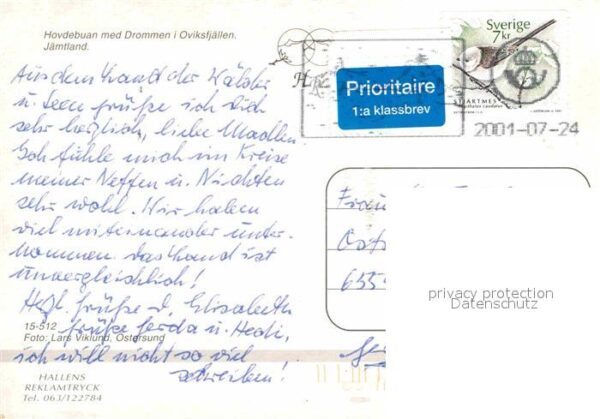 Hovdebuan med Drommen i Oviksfjällen.
Jämtland.
Aus dem Land der Wälder
u. Seen grüße ich Dich
sehr herzlich, liebe Madlen
Ich fühle mich im Kreise
meiner Neffen u. Nichten
sehr wohl. Wir haben
viel miteinander unter-
nommen. Das Land ist
unvergleichlich!
Herzl. Grüße d. Elisabeth
15-512
Grüße Gerda u. Hedi,
Foto: Lars Viklund, Östersund
ich will nicht so viel
schreiben!
HALLENS
REKLAMTRYCK
Tel. 063/122784
Prioritaire
1:a klassbrev
Sverige
7 kr
2001-07-24
Frau
6555
privacy protection
Datenschutz